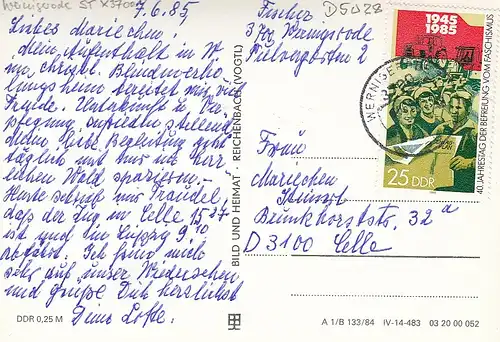 Wernigerode ST X3700
7.6.85,
Liebes Mariechen!
Mein Aufenthalt in W
im christl. Blindenerho-
lungsheim bereitet mir viel
Freude. Unterkunft u Ver-
pflegung zufriedenstellend.
Meine liebe Begleitung geht
täglich mit mir im herr-
lichen Wald spazieren. –
Heute schrieb mir Traudel,
daß der Zug in Celle 15 27
ist und in Leipzig 9 40
abfährt. Ich freue mich
sehr auf unser Wiedersehen
und grüße Dich herzlichst
Deine Lotte.
DDR 0,25 M
BILD UND HEIMAT · REICHENBACH (VOGTL)
Fischer
3700 Wernigerode
2
D5028
1945
1985
25 DDR
40. JAHRESTAG DER BEFREIUNG VOM FASCHISMUS
WERNIGE
Frau
Mariechen
Brinkhorststr. 32a
D 3100 Celle
A 1/B 133/84 IV-14-483 03 20 00 052